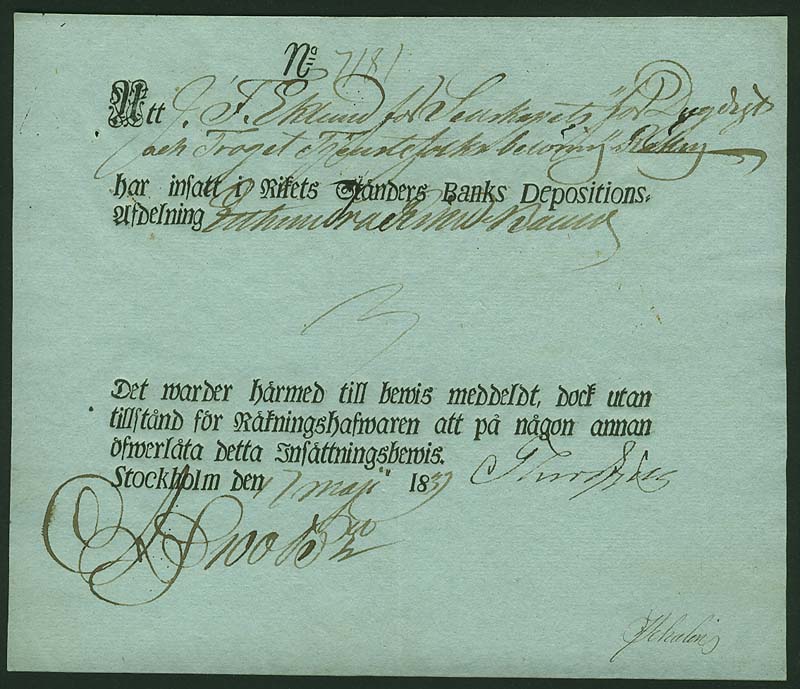 No 7181
Att J. F. Eklund för Sällskapets "för Dygdigt
och Troget Tjenstefolks belöning" Räkning
har insatt i Rikets Ständers Banks Depositions-
Afdelning Etthundra Riksd Banco
Det warder härmed till bewis meddeldt, dock utan
tillstånd för Räkningshafwaren att på någon annan
öfwerlåta detta Insättningsbewis.
Stockholm den 7 Maji 1837